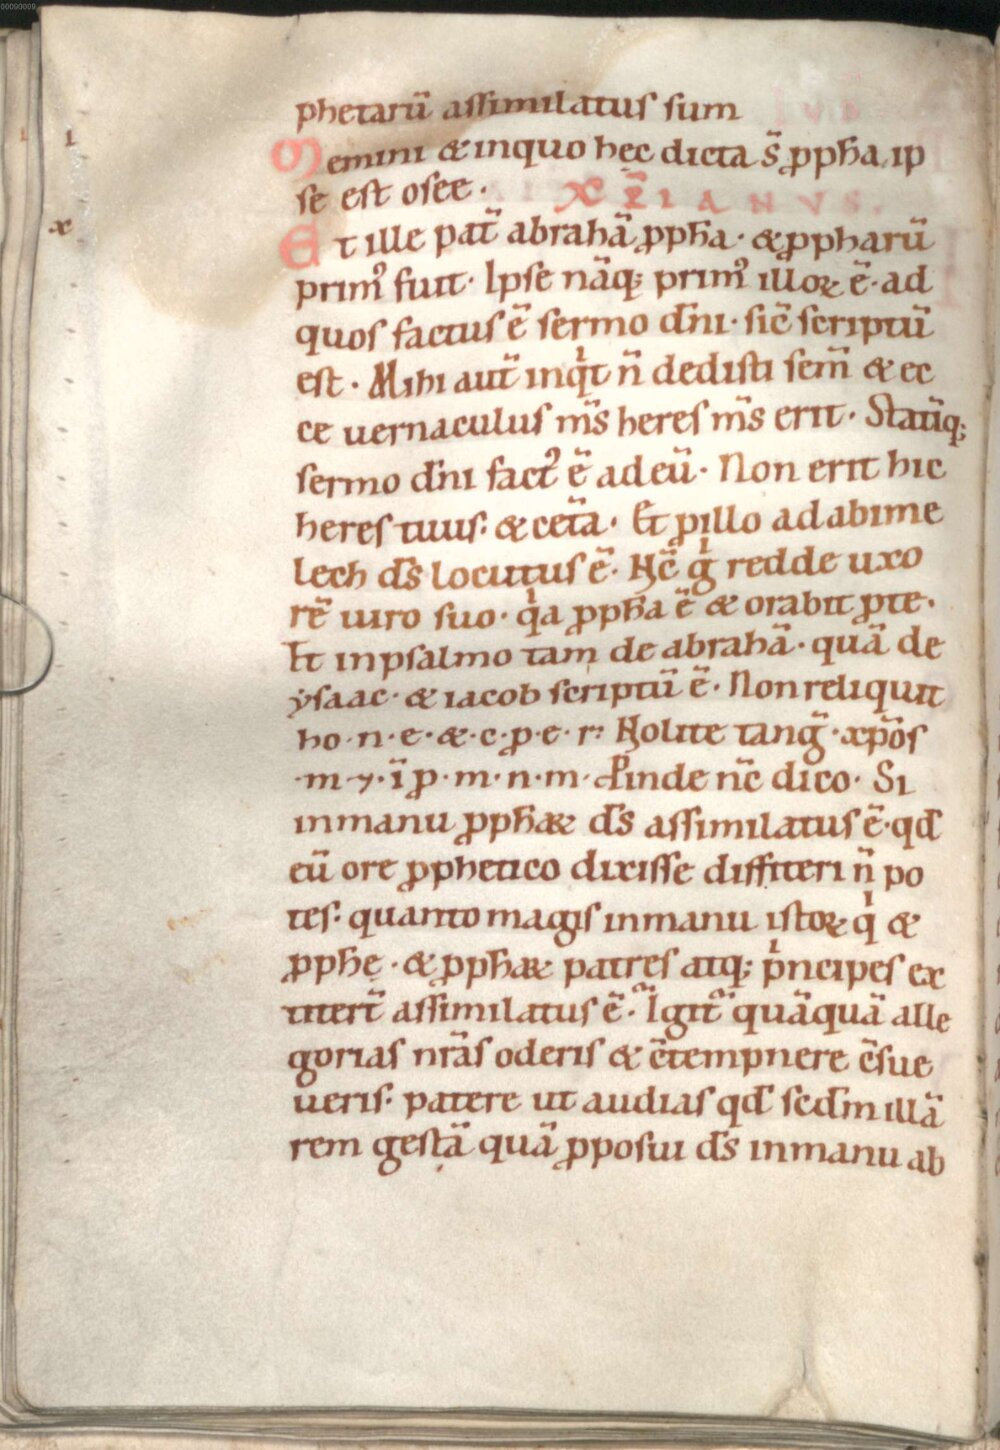 00090009
phetarū assimilatus sum
l Memini & inquo hęc dicta s̄ ꝓph̄a, ip
se est osee .
x XP̄IANVS.
Et ille pat̄ abrahā ꝓph̄a · & ꝓpharū
primꝰ fuit · Ipse nāq; primꝰ illoꝝ ē · ad
quos factus ē sermo dn̄i · sic̄ scriptū
est · Mihi aut̄ inqͥt n̄ dedisti sem̄ & ec
ce uernaculus ms̄ heres ms̄ erit · Statīq;
sermo dn̄i factꝰ ē ad eū · Non erit hic
heres tuus: & cet̄a · Et ꝓ illo ad abime
lech ds̄ locutus ē · Nc̄ gͥ redde uxo
rē uiro suo · qͥa ꝓph̄a ē & orabit ꝓ te ·
Et in psalmo tam de abrahā · quā de
ẏsaac · & iacob scriptū ē · Non reliquit
ho · n · e · & · c · ꝓ · e · r: Nolite tang̃ · xp̄os
· m · ⁊ · ī ꝓ · m · n · m · Pinde nc̄ dico · Si
inmanu ꝓph̄aꝝ ds̄ assimilatus ē · qđ
eū ore ꝓphetico dixisse diffiteri n̄ po
tes: quanto magis inmanu istoꝝ qͥ &
ꝓphę · & ꝓph̄aꝝ patres atq; pͥncipes ex
titert̄ assimilatus ē · Igit᷑ quāquā alle
gorias nr̄as oderis & c̄tempnere c̄sue
ueris · patere ut audias qđ scđm illā
rem gestā quā ꝓposui ds̄ inmanu ab